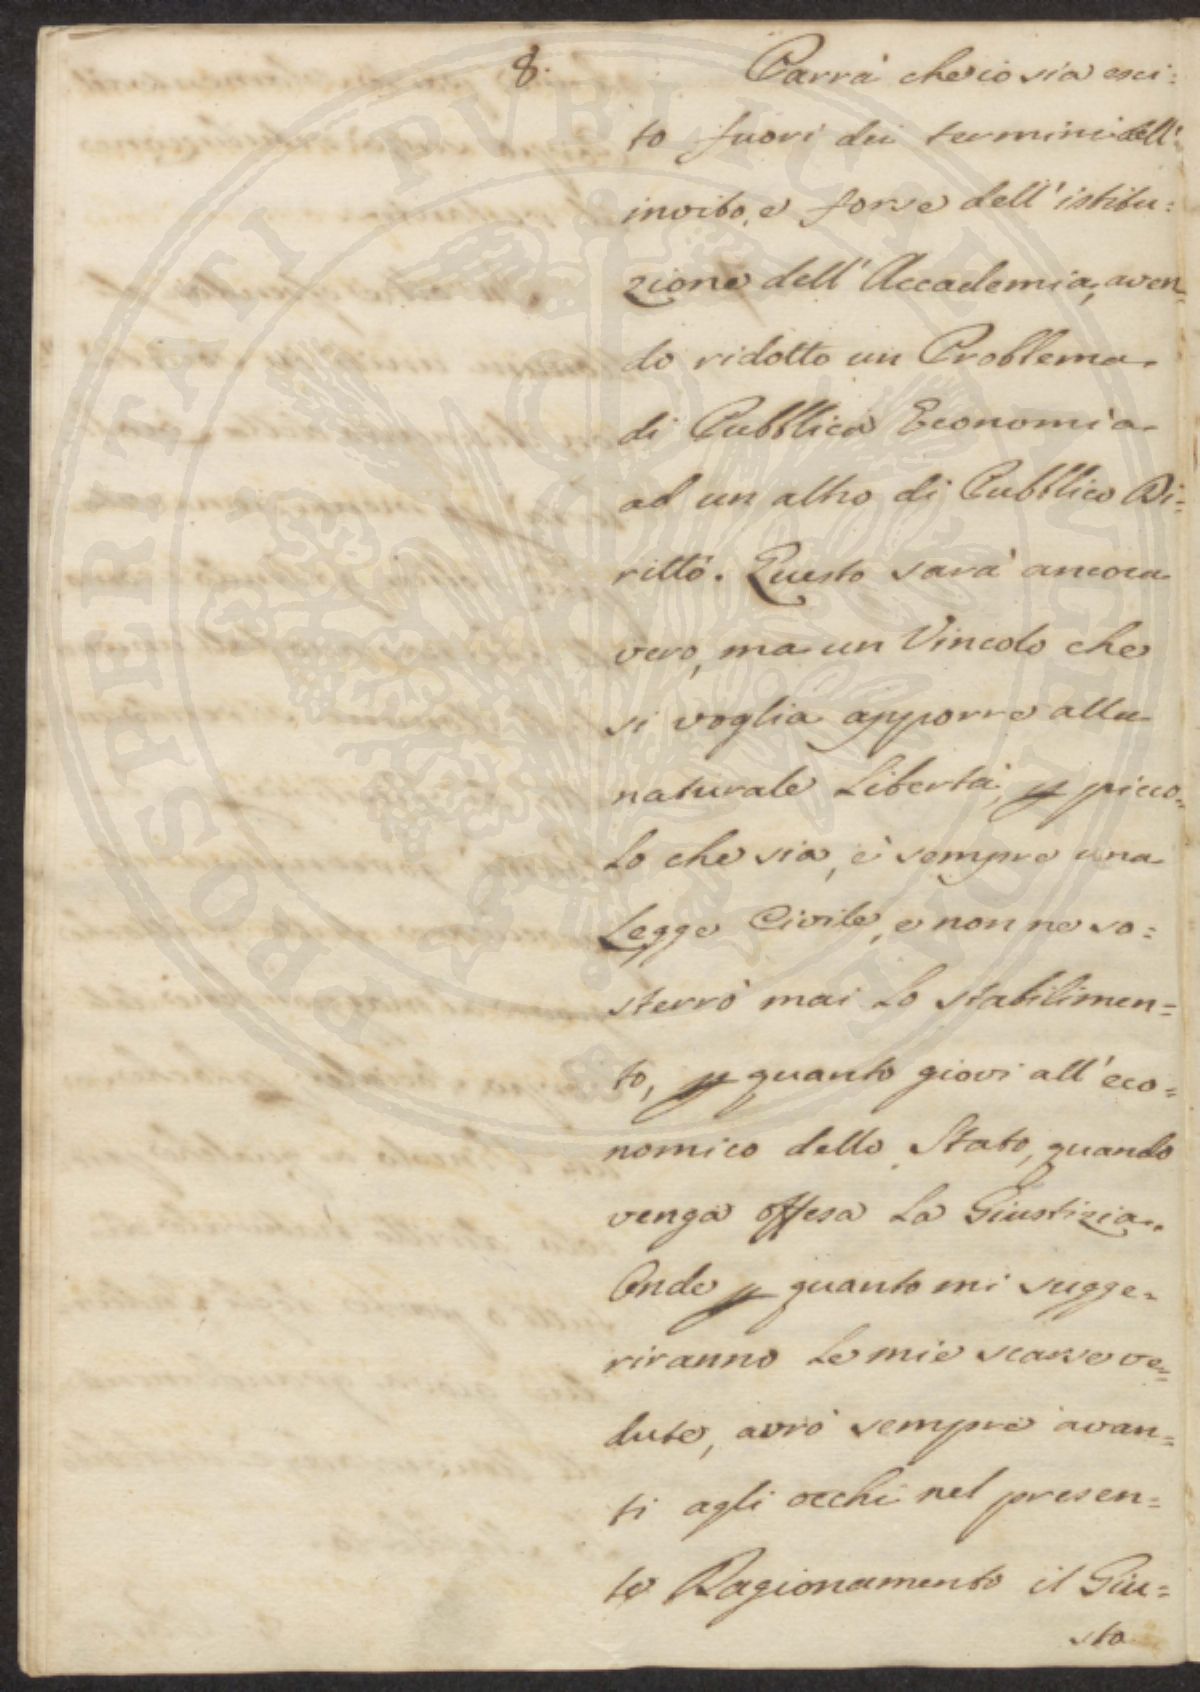 8.
Parrà che io sia esci=
to fuori dei termini dell'
invito, e forse dell'istitu=
zione dell'Accademia, aven=
do ridotto un Problema
di Pubblica Economia
ad un altro di Pubblico Di=
ritto. Questo sarà ancora
vero, ma un Vincolo che
si voglia apporre alla
naturale Libertà, p picco=
lo che sia, è sempre una
Legge Civile, e non ne so=
sterrò mai lo stabilimen=
to, p quanto giovi all'eco=
nomico dello Stato, quando
venga offesa la Giustizia.
Onde p quanto mi sugge=
riranno le mie scarse ve=
dute, avrò sempre avan=
ti agli occhi nel presen=
te Ragionamento il Giu=
sto
PROSPERITATI PVBLICAE AVGENDAE